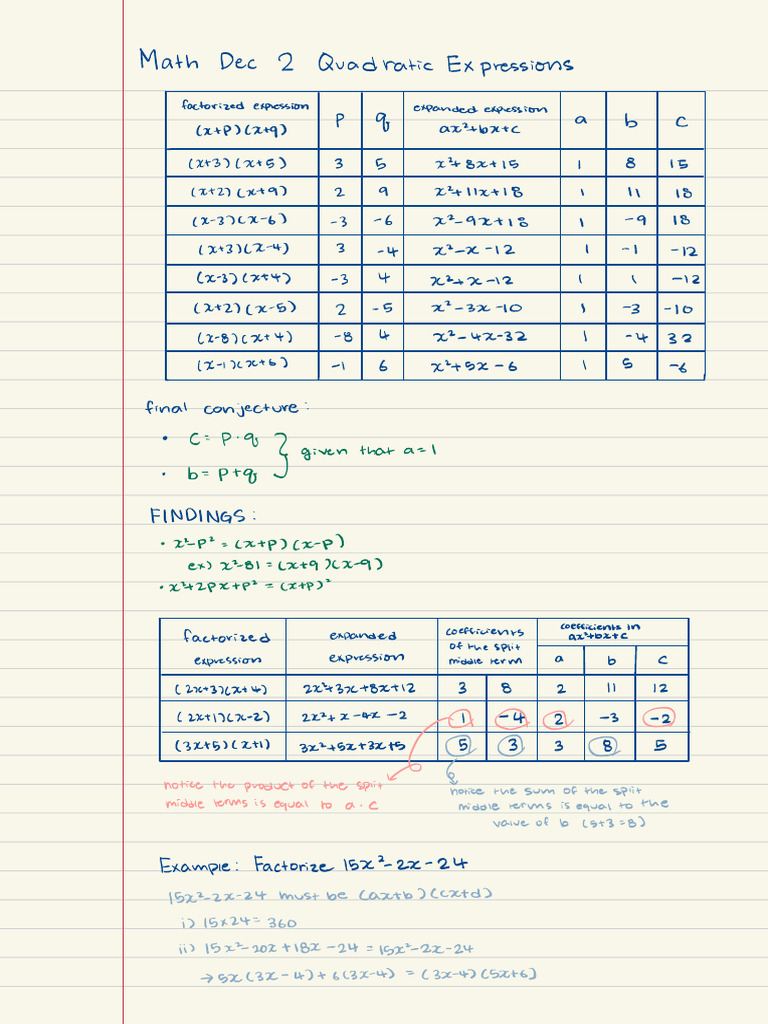 Math Dec 2 Quadratic Expressions
factorized expression (x+p)(x+q) | p | q | expanded expression ax²+bx+c | a | b | c
(x+3)(x+5) | 3 | 5 | x²+8x+15 | 1 | 8 | 15
(x+2)(x+9) | 2 | 9 | x²+11x+18 | 1 | 11 | 18
(x-3)(x-6) | -3 | -6 | x²-9x+18 | 1 | -9 | 18
(x+3)(x-4) | 3 | -4 | x²-x-12 | 1 | -1 | -12
(x-3)(x+4) | -3 | 4 | x²+x-12 | 1 | 1 | -12
(x+2)(x-5) | 2 | -5 | x²-3x-10 | 1 | -3 | -10
(x-8)(x+4) | -8 | 4 | x²-4x-32 | 1 | -4 | 32
(x-1)(x+6) | -1 | 6 | x²+5x-6 | 1 | 5 | -6
final conjecture:
• C = p·q
• b = p+q } given that a=1
FINDINGS:
• x²-p² = (x+p)(x-p)
ex) x²-81 = (x+9)(x-9)
• x²+2px+p² = (x+p)²
factorized expression | expanded expression | coefficients of the split middle term | coefficients in ax²+bx+c
a | b | c
(2x+3)(x+4) | 2x²+3x+8x+12 | 3 | 8 | 2 | 11 | 12
(2x+1)(x-2) | 2x²+x-4x-2 | 1 | -4 | 2 | -3 | -2
(3x+5)(x+1) | 3x²+5x+3x+5 | 5 | 3 | 3 | 8 | 5
notice the product of the split
middle terms is equal to a·c
notice the sum of the split
middle terms is equal to the
value of b (5+3=8)
Example: Factorize 15x²-2x-24
15x²-2x-24 must be (ax+b)(cx+d)
i) 15×24 = 360
ii) 15x²-20x+18x-24 = 15x²-2x-24
→ 5x(3x-4)+6(3x-4) = (3x-4)(5x+6)